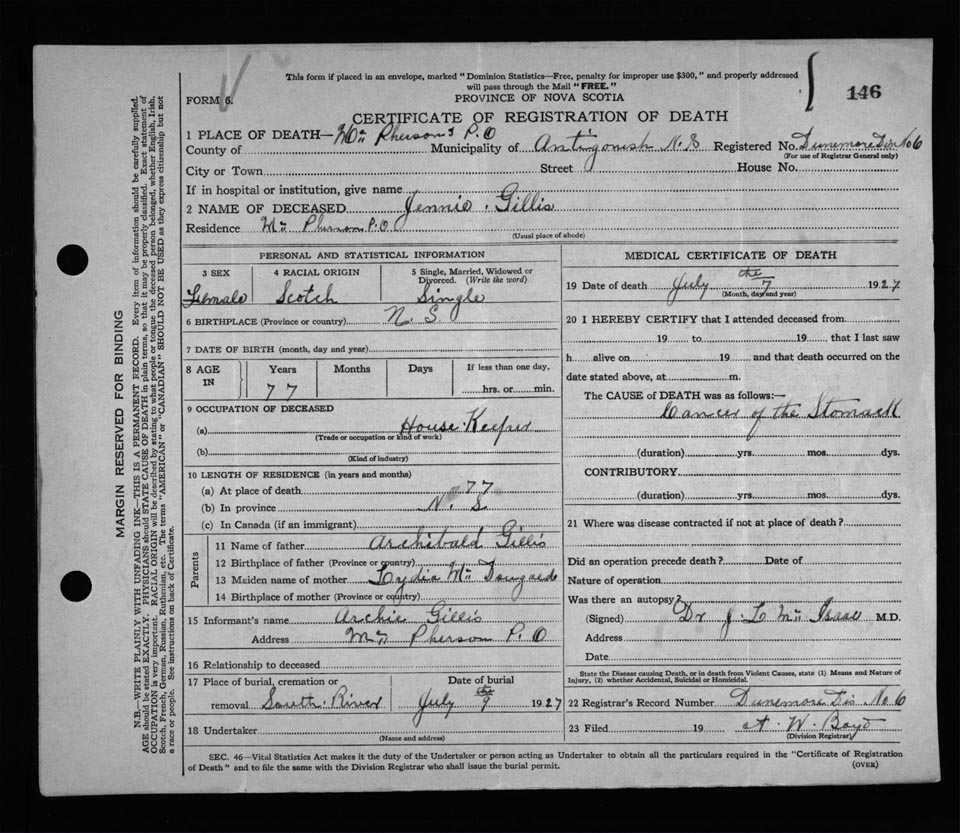 This form if placed in an envelope, marked "Dominion Statistics—Free, penalty for improper use $300," and properly addressed
will pass through the Mail "FREE."
146
FORM 6.
PROVINCE OF NOVA SCOTIA
CERTIFICATE OF REGISTRATION OF DEATH
1 PLACE OF DEATH— Mc Pherson's P.O
County of Municipality of Antigonish N.S Registered No. Dunemore Dis No 6
(For use of Registrar General only)
City or Town Street House No.
If in hospital or institution, give name
2 NAME OF DECEASED Jennie Gillis
Residence Mc Pherson P.O
(Usual place of abode)
PERSONAL AND STATISTICAL INFORMATION
3 SEX 4 RACIAL ORIGIN 5 Single, Married, Widowed or
Divorced. (Write the word)
Female Scotch Single
6 BIRTHPLACE (Province or country) N. S.
7 DATE OF BIRTH (month, day and year)
8 AGE IN Years Months Days If less than one day,
77 hrs. or min.
9 OCCUPATION OF DECEASED
(a) House Keeper
(Trade or occupation or kind of work)
(b)
(Kind of industry)
10 LENGTH OF RESIDENCE (in years and months)
(a) At place of death 77
(b) In province N. S.
(c) In Canada (if an immigrant)
Parents
11 Name of father Archibald Gillis
12 Birthplace of father (Province or country)
13 Maiden name of mother Lydia Mc Dougald
14 Birthplace of mother (Province or country)
15 Informant's name Archie Gillis
Address Mc Pherson P.O
16 Relationship to deceased
17 Place of burial, cremation or Date of burial
removal South River July the 9 1927
18 Undertaker
(Name and address)
MEDICAL CERTIFICATE OF DEATH
19 Date of death July the 7 1927
(Month, day and year)
20 I HEREBY CERTIFY that I attended deceased from
19 to 19 that I last saw
h alive on 19 and that death occurred on the
date stated above, at m.
The CAUSE of DEATH was as follows:—
Cancer of the Stomack
(duration) yrs. mos. dys.
CONTRIBUTORY
(duration) yrs. mos. dys.
21 Where was disease contracted if not at place of death?
Did an operation precede death? Date of
Nature of operation
Was there an autopsy?
(Signed) Dr J L Mc Isaac M.D.
Address
Date
State the Disease causing Death, or in death from Violent Causes, state (1) Means and Nature of
Injury, (2) whether Accidental, Suicidal or Homicidal.
22 Registrar's Record Number Dunemore Dis No 6
23 Filed 19 A. W. Boyd
(Division Registrar)
SEC. 46—Vital Statistics Act makes it the duty of the Undertaker or person acting as Undertaker to obtain all the particulars required in the "Certificate of Registration
of Death" and to file the same with the Division Registrar who shall issue the burial permit.
(OVER)
MARGIN RESERVED FOR BINDING
N.B.—WRITE PLAINLY WITH UNFADING INK—THIS IS A PERMANENT RECORD. Every item of information should be carefully supplied.
AGE should be stated EXACTLY. PHYSICIANS should STATE CAUSE OF DEATH in plain terms, so that it may be properly classified. Exact statement of
OCCUPATION is very important. RACIAL ORIGIN will be described by stating to what people or tongue the deceased person belonged, whether English, Irish,
Scotch, French, German, Russian, Ruthenian, etc. The terms "AMERICAN" or "CANADIAN" SHOULD NOT BE USED as they express citizenship but not
a race or people. See instructions on back of Certificate.